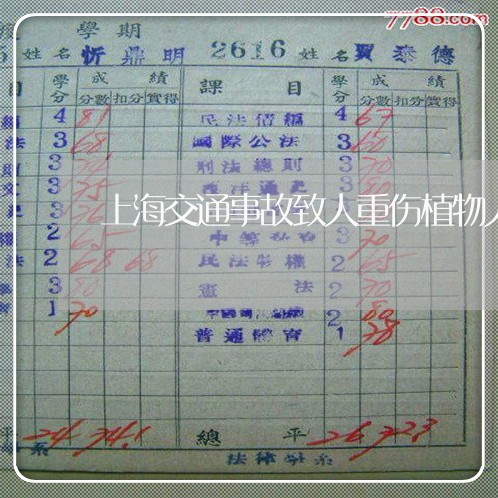 7788.com
學期
姓名 忻鼎明 2616 姓名 賈泰德
目 學分 成績 課目 學分 成績
分數 扣分 實得 分數 扣分 實得
4 81 民法債編 4 67
法 3 68 國際公法 3 60
則 3 刑法總則 3 70
3 75 西洋通史 3 80
上海交通事故致人重伤植物
2 65 3 70
法 2 68 68 民法物權 2 65
3 80 憲法 2 70
1 70 2 80
普通體育 1 78
平 24 74.1 總平 26 72.3
系 法律學系